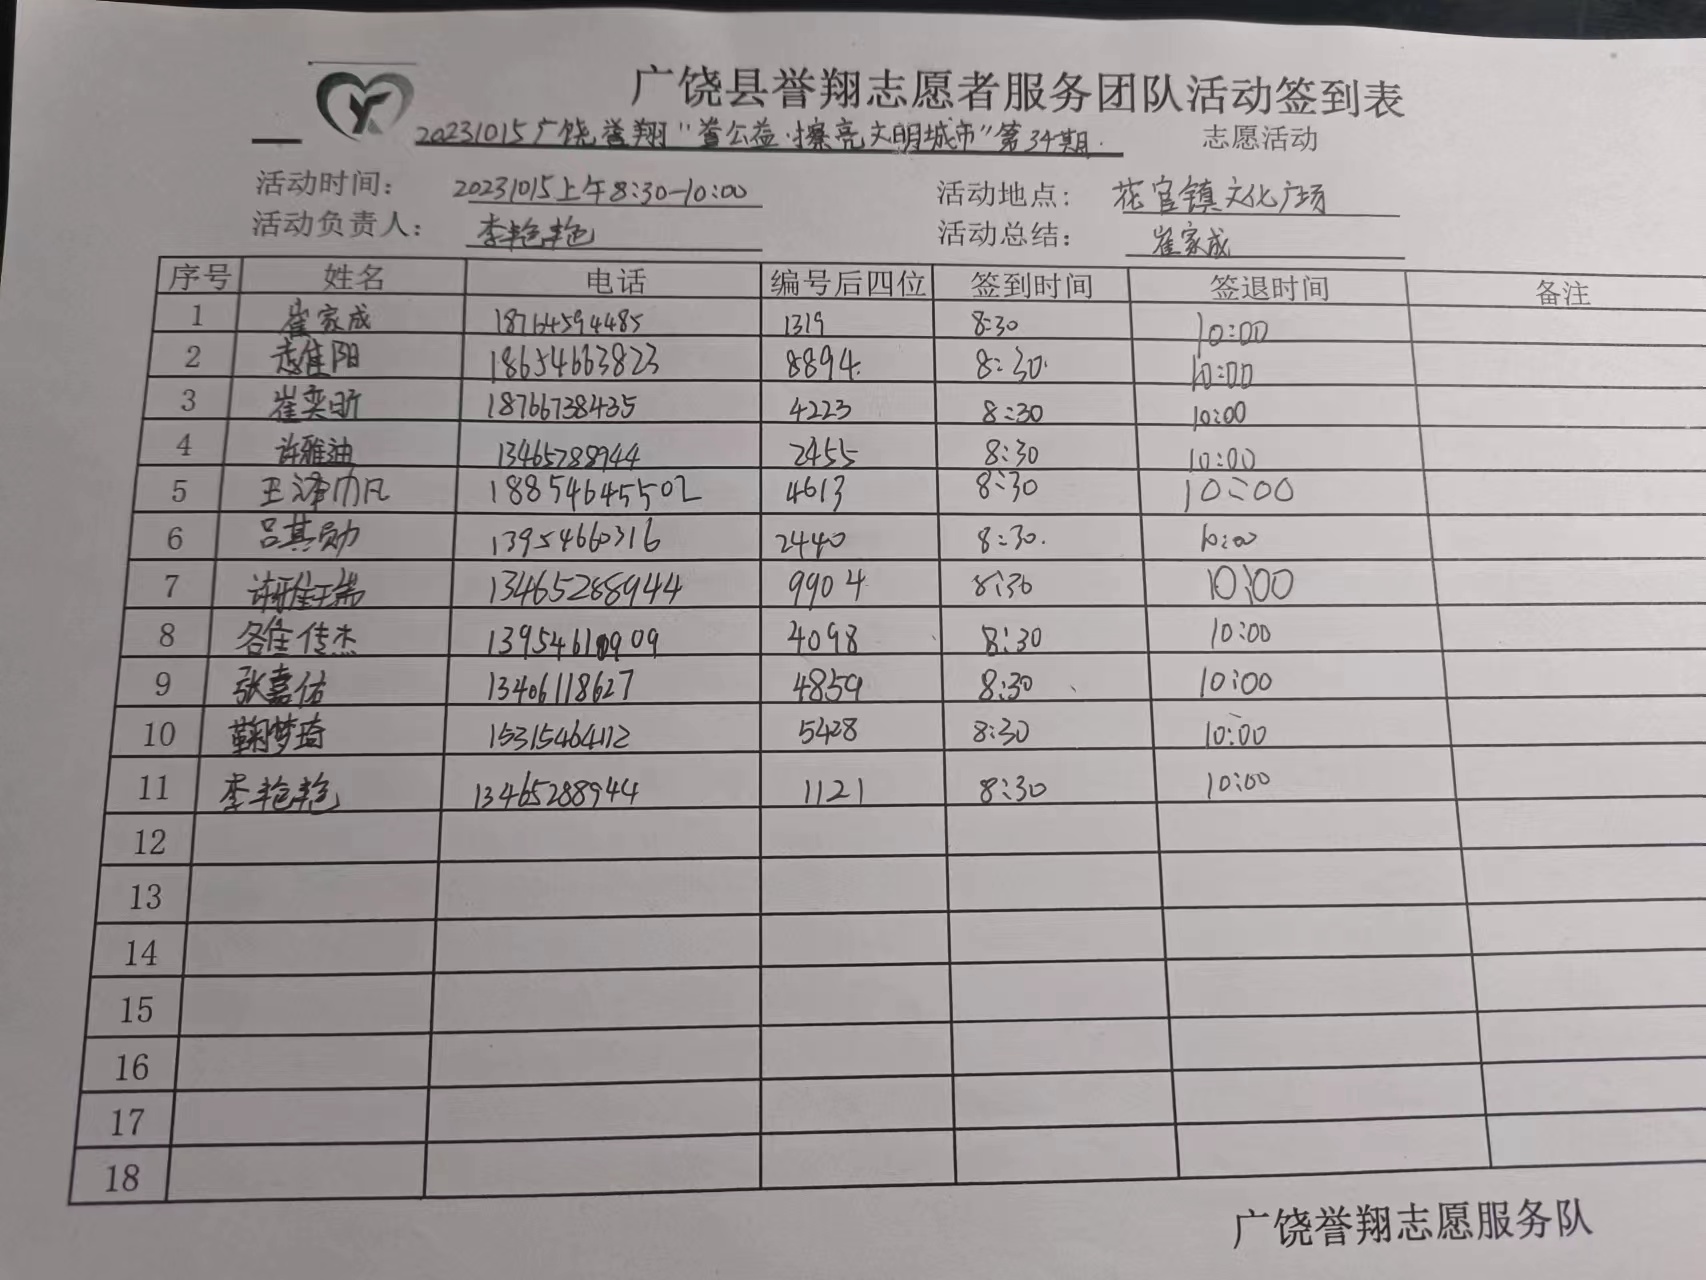 广饶县誉翔志愿者服务团队活动签到表
20231015广饶誉翔"益公益·擦亮文明城市"第34期. 志愿活动
活动时间: 20231015上午8:30-10:00 活动地点: 花官镇文化广场
活动负责人: 李艳艳 活动总结: 崔家成
序号 姓名 电话 编号后四位 签到时间 签退时间 备注
1 崔家成 18764594485 1319 8:30 10:00
2 阳 18654663823 8894 8:30 10:00
3 崔奕昕 18766738435 4223 8:30 10:00
4 许雅迪 13465288944 2455 8:30 10:00
5 王泽 18854645502 4613 8:30 10:00
6 吕其勋 13954660316 2440 8:30 10:00
7 许雅瑞 13465288944 9904 8:30 10:00
8 传杰 4098 8:30 10:00
9 张嘉佑 13406118627 4859 8:30 10:00
10 鞠梦琦 5428 8:30 10:00
11 李艳艳 13465288944 1121 8:30 10:00
12
13
14
15
16
17
18
广饶誉翔志愿服务队